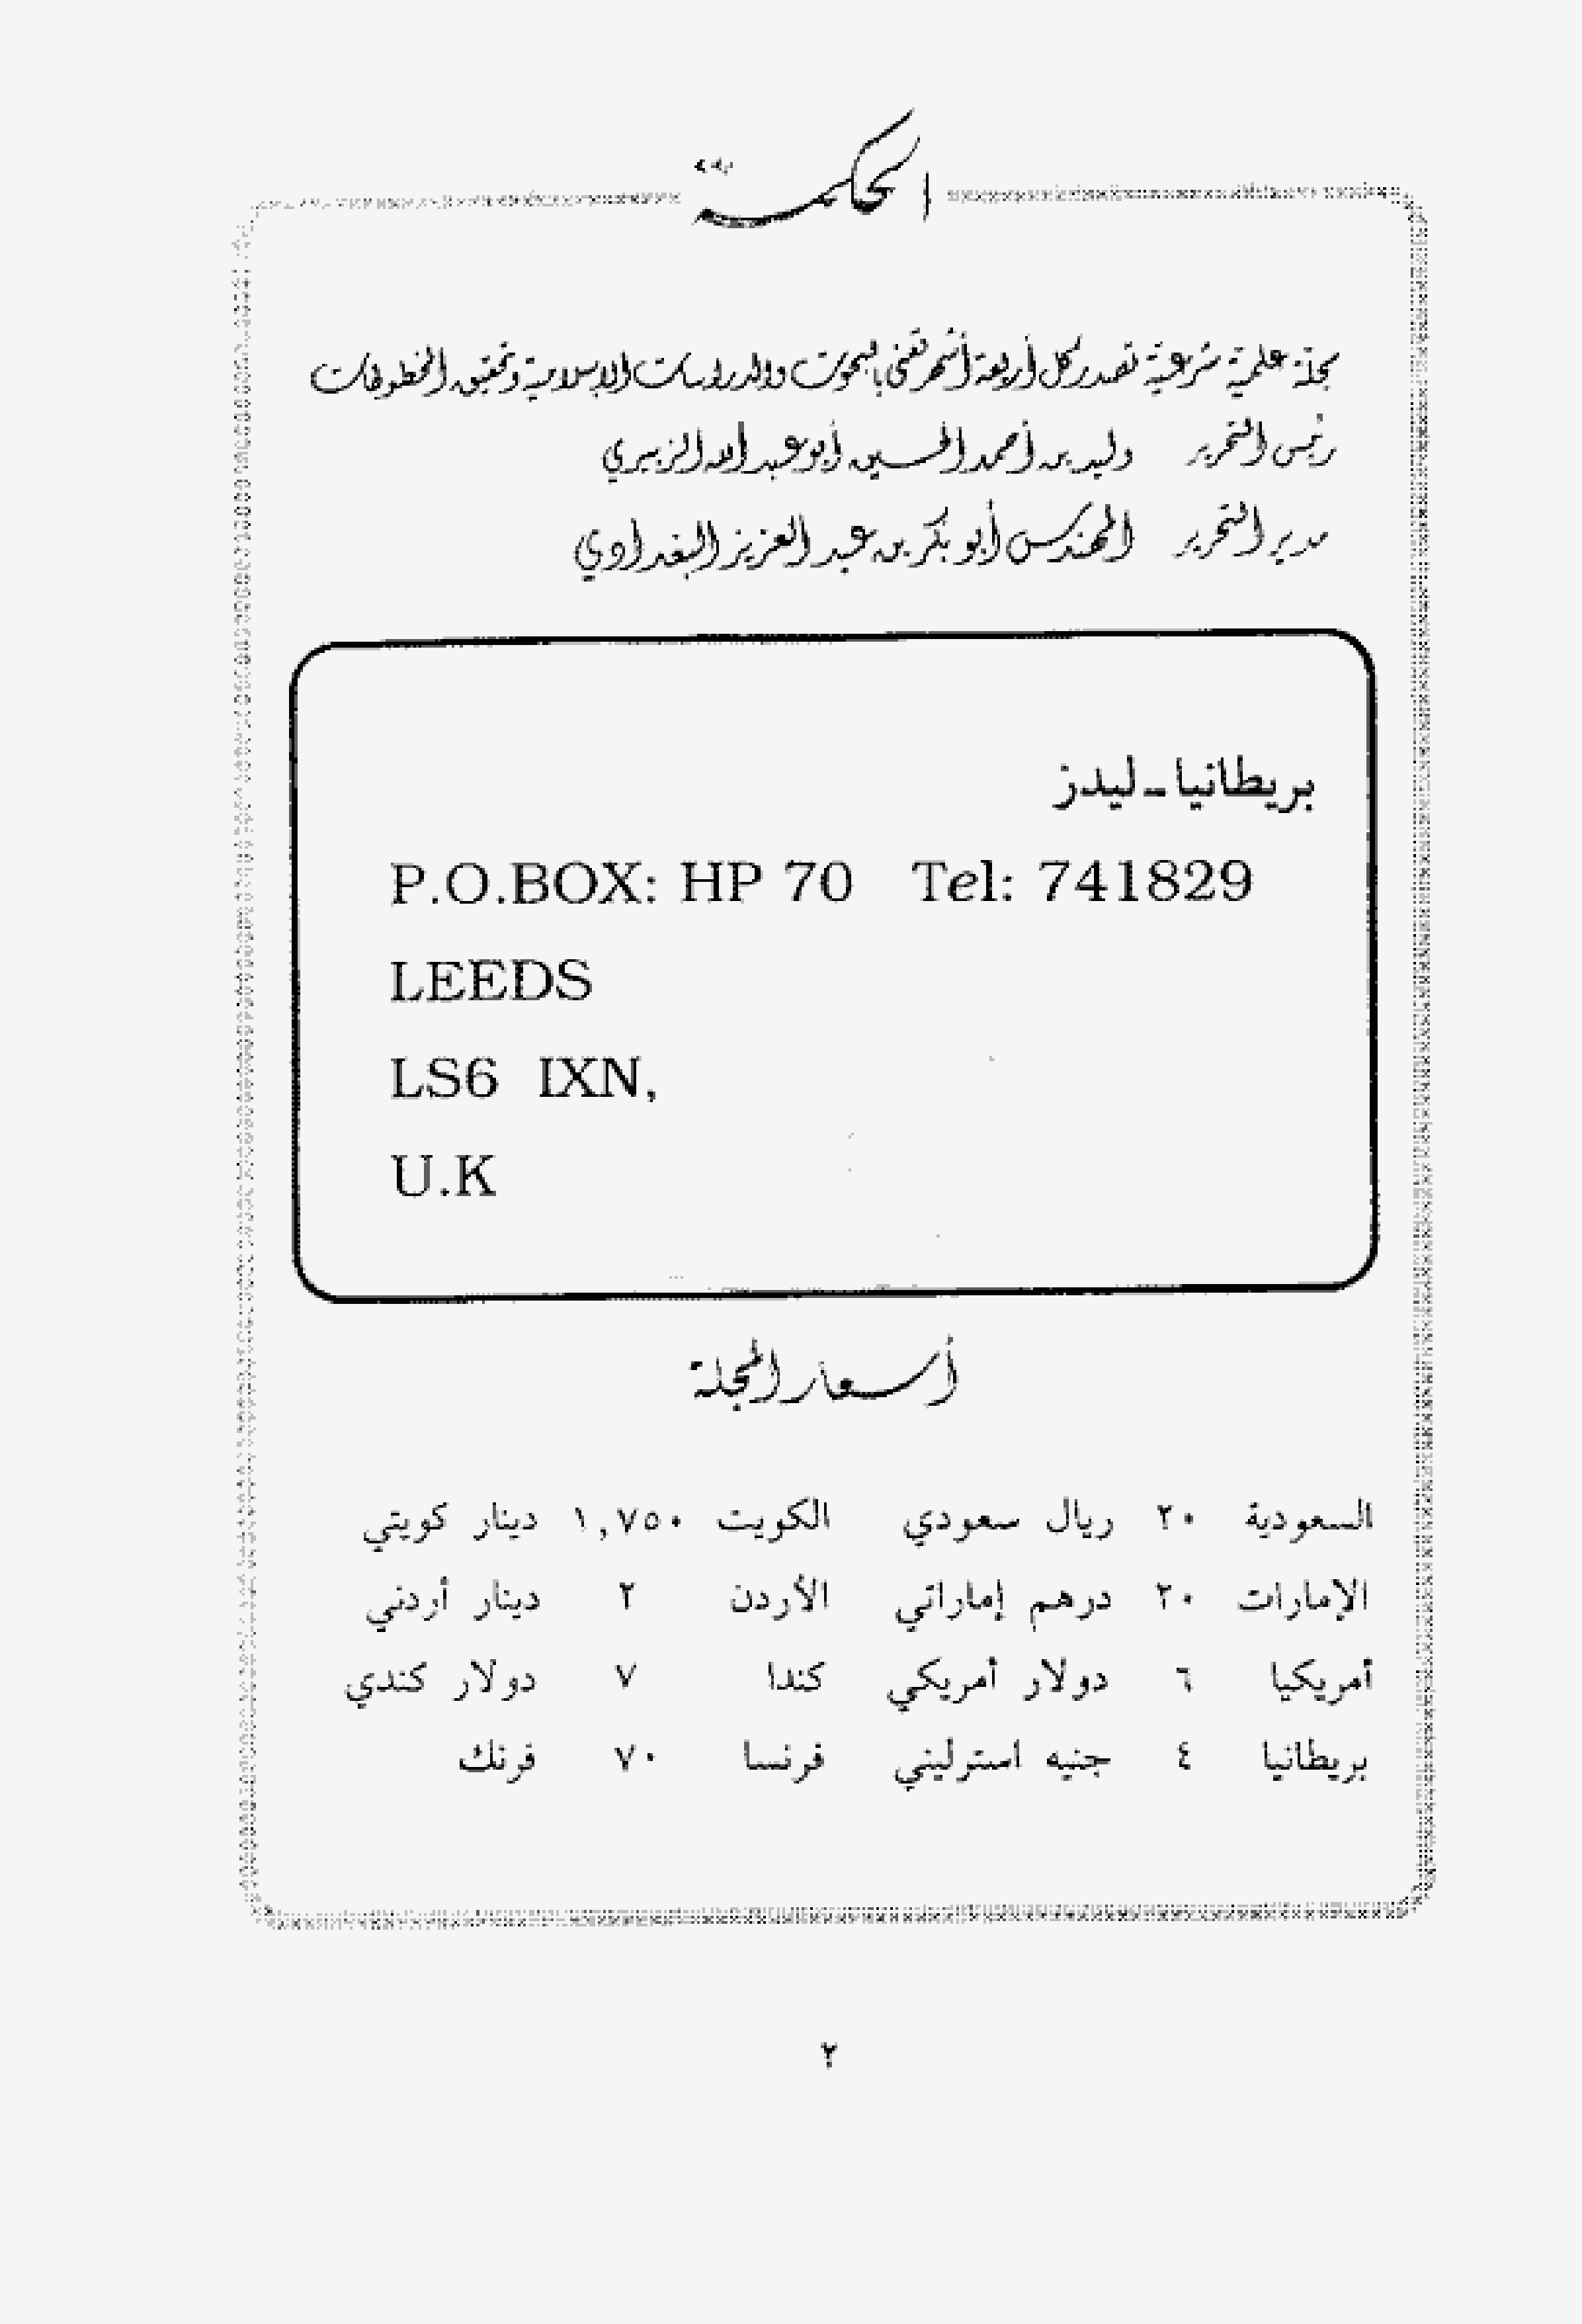 الحكمة
مجلة علمية شرعية تصدر كل أربعة أشهر تعنى بالبحوث والدراسات الإسلامية وتحقيق المخطوطات
رئيس التحرير وليد بن أحمد الحسين أبو عبد الله الزبيري
مدير التحرير المهندس أبو بكر بن عبد العزيز البغدادي
بريطانيا - ليدز
P.O.BOX: HP 70 Tel: 741829
LEEDS
LS6 IXN,
U.K
أسعار المجلة
السعودية ٢٠ ريال سعودي الكويت ١,٧٥٠ دينار كويتي
الإمارات ٢٠ درهم إماراتي الأردن ٢ دينار أردني
أمريكيا ٦ دولار أمريكي كندا ٧ دولار كندي
بريطانيا ٤ جنيه استرليني فرنسا ٧٠ فرنك
٢